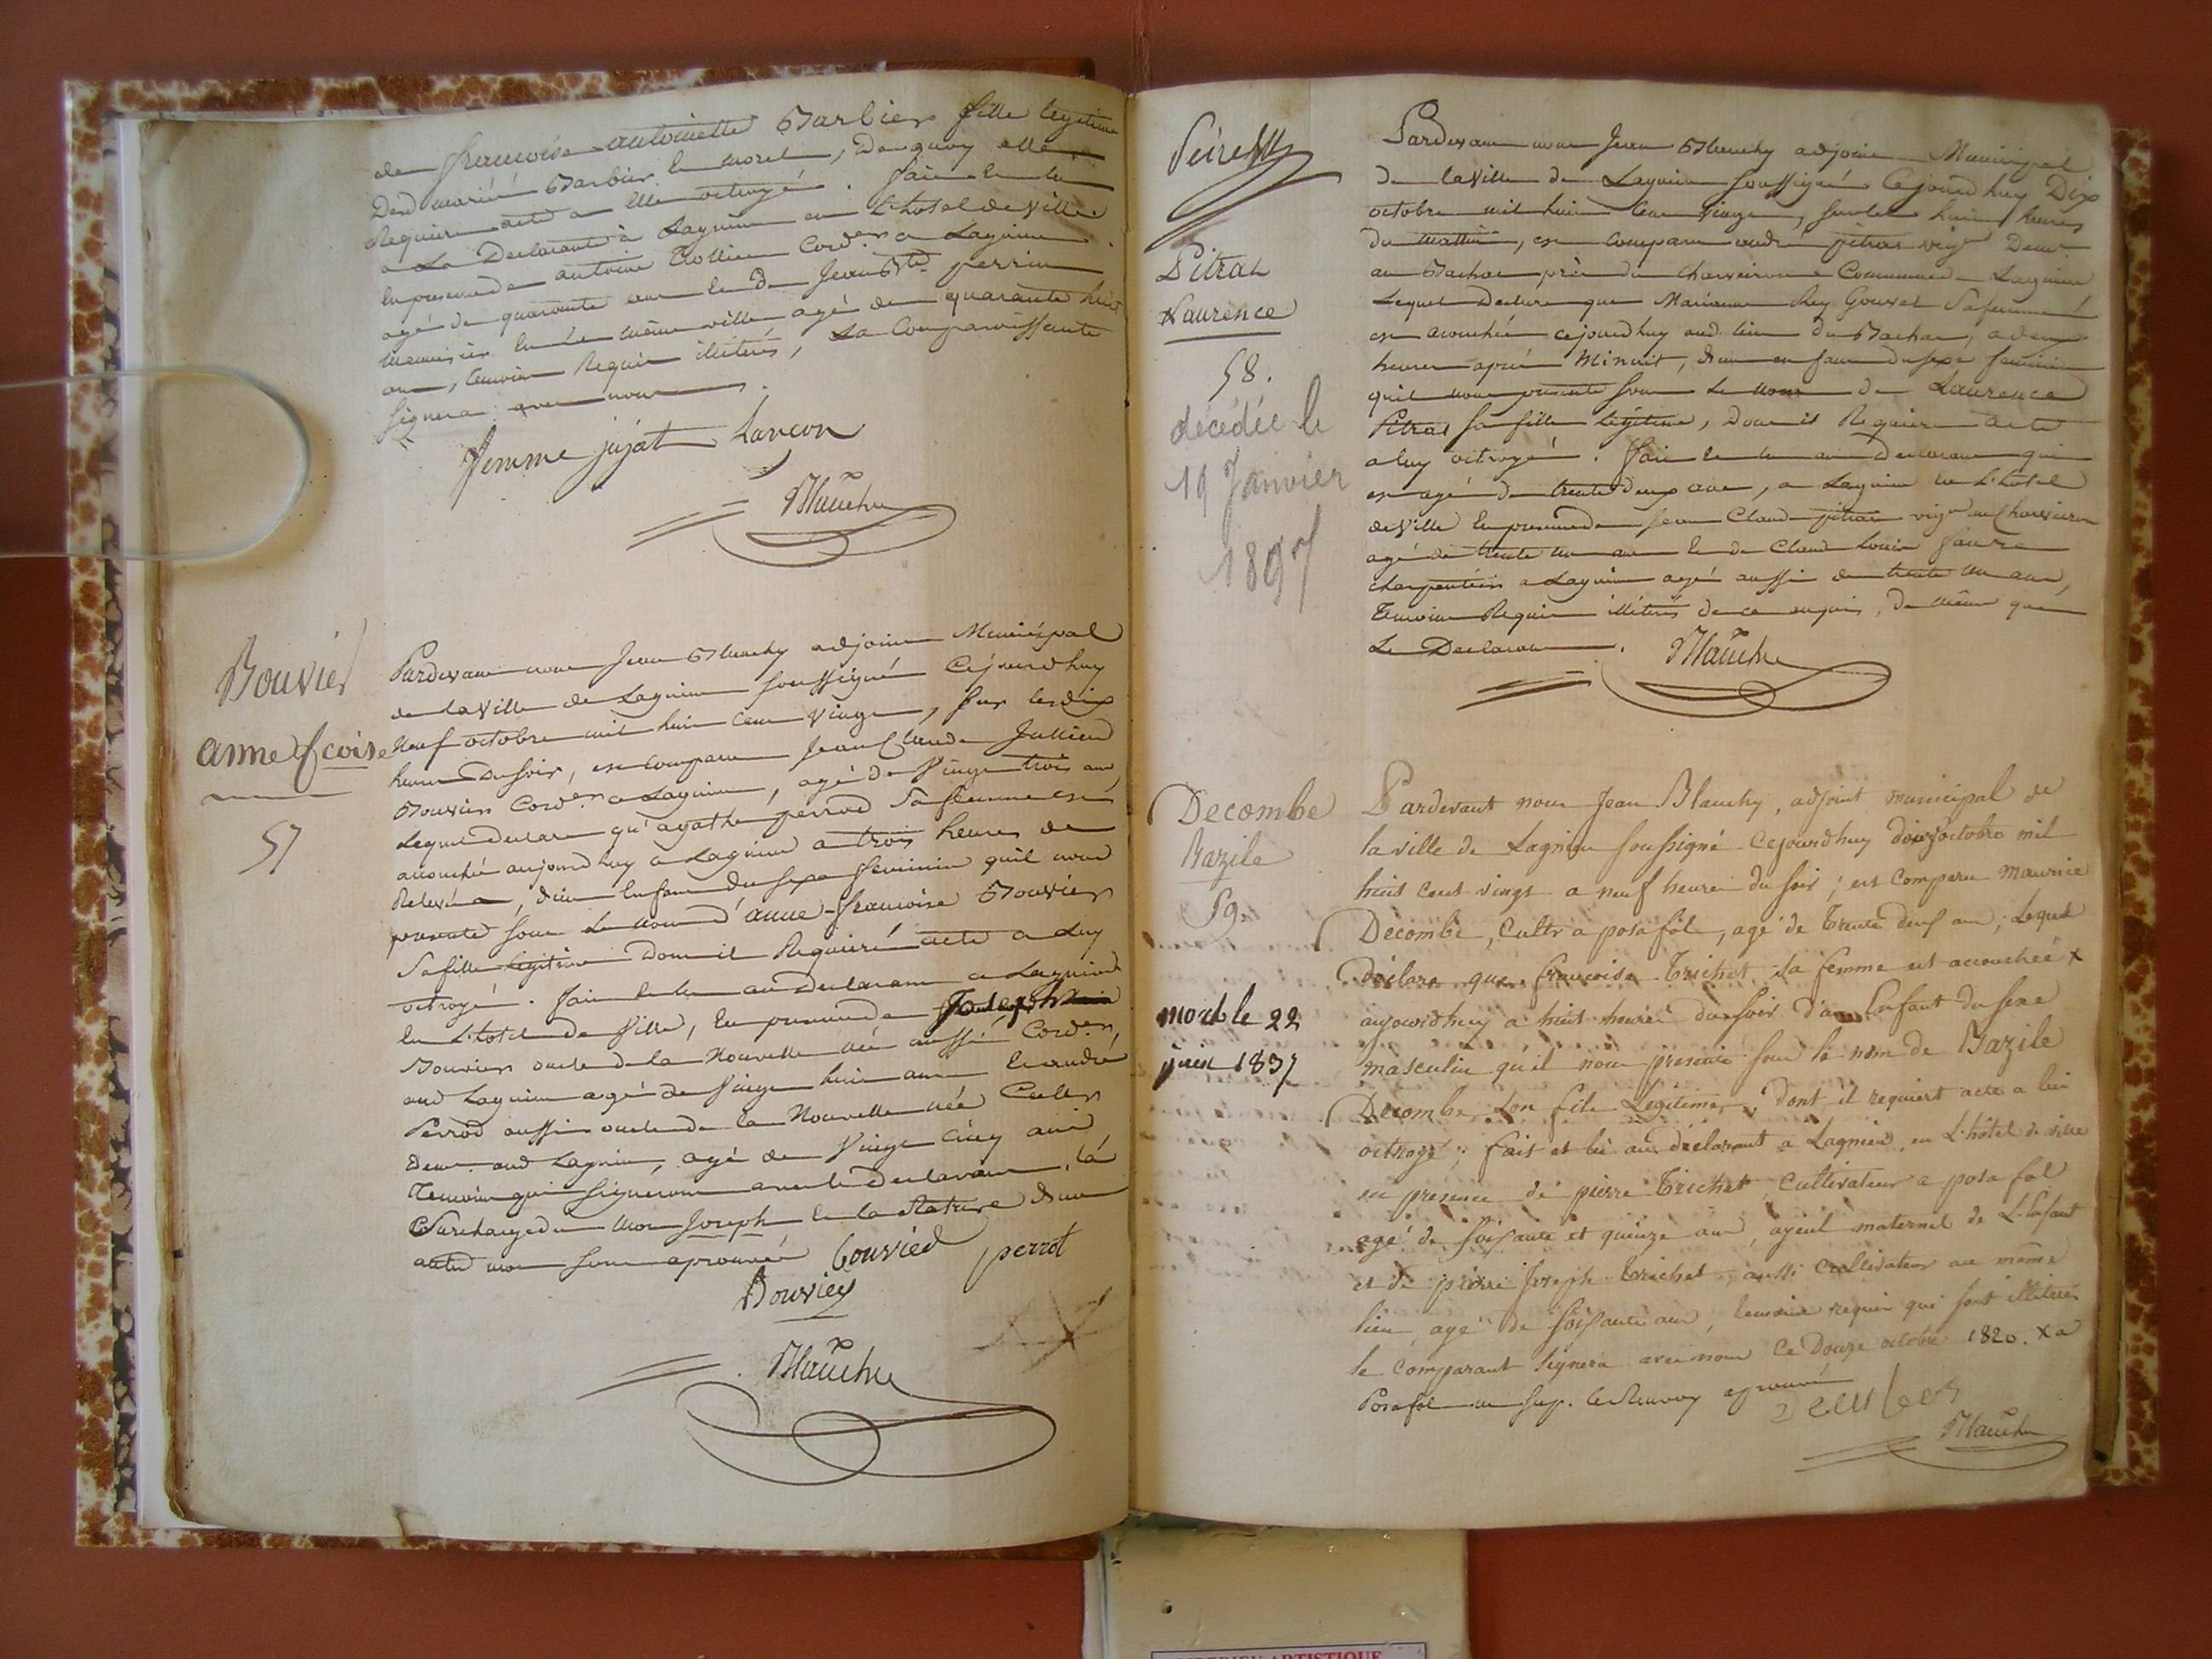 de françoise antoinette Barbier fille legitime
Dud marié Barbier et morel, De quoy elle
Requiere acte a elle octroyé. fait et lu
a La Declarante à Lagnieu en L'hotel de Ville
En presence de antoine Collier Cordier a Lagnieu
agé de quarante ans et de Jean Bte perrin
menuisier En La même ville agé de quarante huit
ans, temoins Requis illiterés, La Comparaissante
Signera avec nous.
femme jujat Lancon
Blauchy
Bouvier
anne fcoise
57
Pardevant nous Jean Blauchy adjoint Municipal
de la Ville de Lagnieu soussigné Cejourdhuy
Neuf octobre mil huit cent vingt, sur les dix
heures Du soir, est comparu Jean Claude Jullien
Bouvier Cordier a Lagnieu, agé de Vingt trois ans
Lequel declare qu'agathe perrod Sa femme est
accouchée aujourdhuy a Lagnieu a trois heures de
Relevée, d'un Enfant du sexe feminin qu'il nous
presente sous Le nom d'anne-francoise Bouvier
Sa fille Legitime Dont il Requiere acte a Luy
octroyé. fait et lu au Declarant a Lagnieu
En L'hotel de Ville, En presence de Joseph
Bouvier oncle de la Nouvelle née aussi Cordier,
aud Lagnieu agé de Vingt huit ans et andré
Perrod aussi oncle de la Nouvelle née Culter
Demt aud Lagnieu, agé de Vingt cinq ans
Temoins qui signeront avec le Declarant, la
Surcharge du mot Joseph et la Rature d'un
autre mot sont aprouvés bouvier perrot
Bouvier
Blauchy
Pitrat
Laurence
58.
décédée le
19 Janvier
1897
Pardevant nous Jean Blauchy adjoint Municipal
de la Ville de Lagnieu soussigné Cejourdhuy Dix
octobre mil huit Cent Vingt, sur les huit heures
du mattin, est comparu andré pitrat vigr Demt
au Bachas près du Charveyron Commune de Lagnieu
Lequel Declare que Marianne Rey Gouvet Sa femme
est acouchée cejourdhuy aud. lieu du Bachas, a deux
heures après Minuit, d'un enfant du sexe feminin
qu'il nous presente sous Le nom de Laurence
Pitrat sa fille legitime, Dont il Requiere acte
a luy octroyé. fait et lu au Declarant qui
est agé de trente deux ans, a Lagnieu en L'hotel
de Ville En presence de Jean Claude pitrat vigr au Charveiron
agé de trente un ans et de Claude Louis faure
charpentier a Lagnieu agé aussi de trente un ans,
Temoins Requis illiterés de ce enquis, de même que
Le Declarant. Blauchy
Decombe
Bazile
59.
mort le 22
juin 1837
Pardevant nous Jean Blauchy, adjoint municipal de
la ville de Lagnieu soussigné Cejourdhuy douze octobre mil
huit cent vingt a neuf heures du soir; est Comparu maurice
Decombe, Cultr a posafol, agé de trente deux ans; Lequel
déclare que francoise Trichet sa femme est accouchée x
aujourdhuy a huit heures du soir d'un Enfant du sexe
masculin qu'il nous presente sous le nom de Bazile
Decombe son fils Legitime; dont il requiert acte a lui
octroyé; fait et lu au déclarant a Lagnieu, en L'hôtel de ville
en presence de pierre Trichet, Cultivateur a posafol
agé de soixante et quinze ans, ayeul maternel de L'Enfant
et de pierre Joseph Trichet, aussi Cultivateur au même
lieu, agé de soixante ans, temoins requis qui sont illiterés
le comparant signera avec nous Ce Douze octobre 1820. x a
Posafol en sus. le Renvoy aprouvé
Blauchy